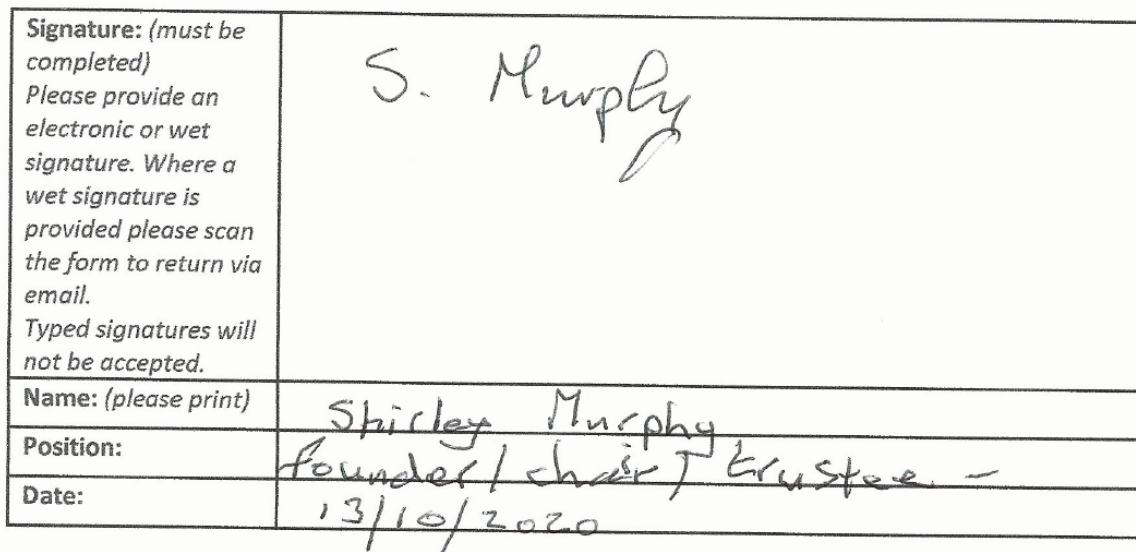 Signature: (must be
completed)
Please provide an
electronic or wet
signature. Where a
wet signature is
provided please scan
the form to return via
email.
Typed signatures will
not be accepted.
S. Murphy
Name: (please print)
Shirley Murphy
Position:
founder / chair / trustee -
Date:
13/10/2020